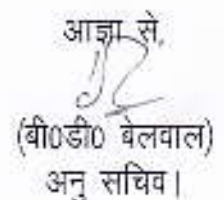 आज्ञा से,
(बी0डी0 बेलवाल)
अनु सचिव।